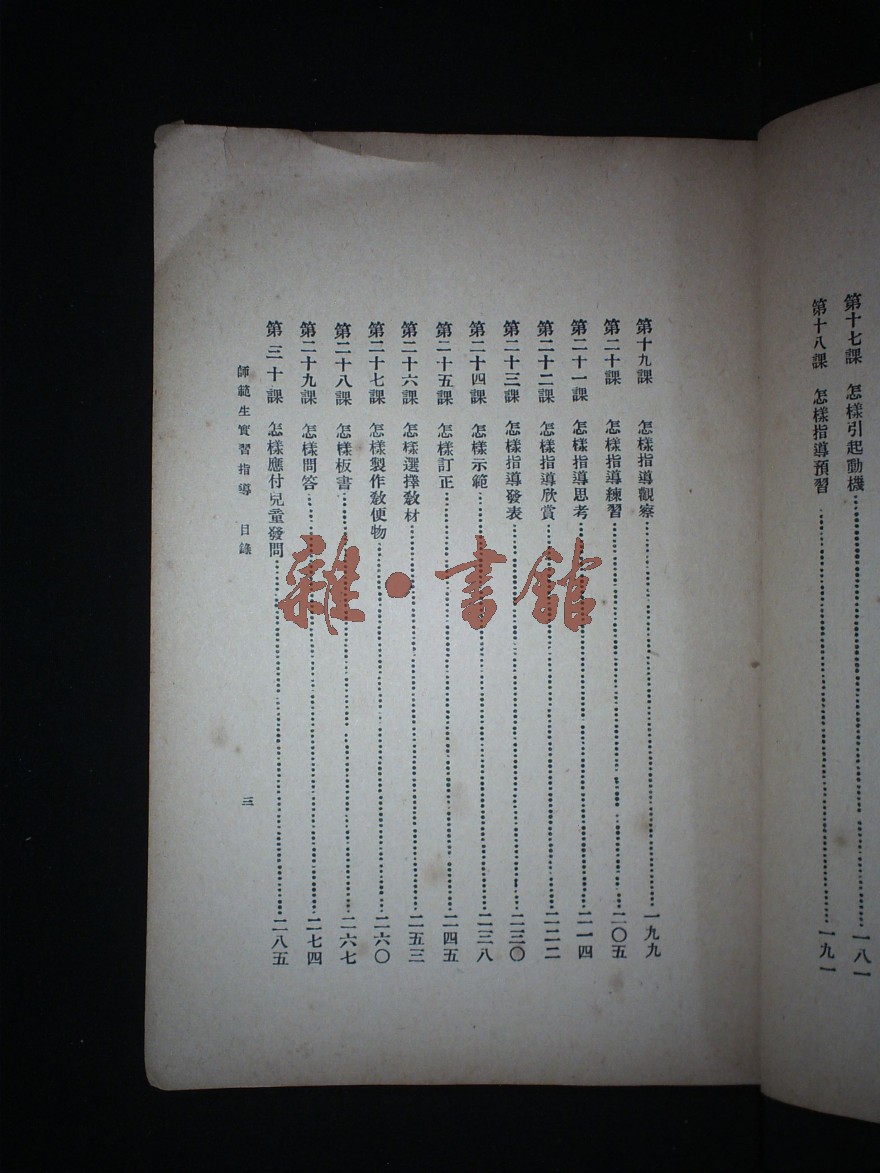 第十七課 怎樣引起動機……一八一
第十八課 怎樣指導預習……一九一
第十九課 怎樣指導觀察……一九九
第二十課 怎樣指導練習……二〇五
第二十一課 怎樣指導思考……二一四
第二十二課 怎樣指導欣賞……二二二
第二十三課 怎樣指導發表……二三〇
第二十四課 怎樣示範……二三八
第二十五課 怎樣訂正……二四五
第二十六課 怎樣選擇敎材……二五三
第二十七課 怎樣製作敎便物……二六〇
第二十八課 怎樣板書……二六七
第二十九課 怎樣問答……二七四
第三十課 怎樣應付兒童發問……二八五
師範生實習指導 目錄 三
雜·書館